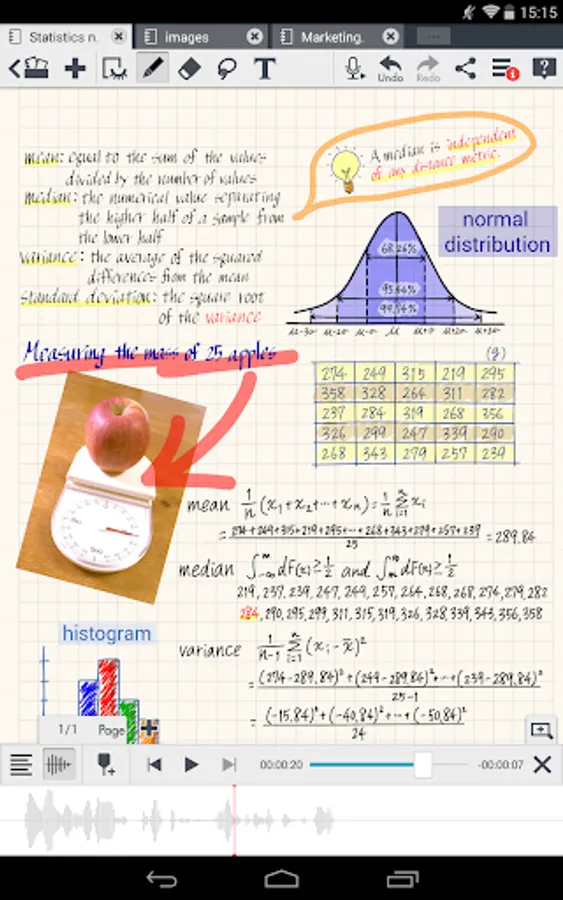 15:15
Statistics n.
images
Marketing.
T
Undo
Redo
mean: equal to the sum of the values
divided by the number of values
median: the numerical value separating
the higher half of a sample from
the lower half
variance: the average of the squared
differences from the mean
standard deviation: the square root
of the variance
A median is independent
of any distance metric.
normal
distribution
68.26%
95.44%
99.74%
μ-3σ μ-2σ μ-σ μ μ+σ μ+2σ μ+3σ
Measuring the mass of 25 apples
(g)
274 249 315 219 295
358 328 264 311 282
237 284 319 268 356
326 299 247 339 290
268 343 279 257 239
mean 1/n (x₁+x₂+…+xₙ) = 1/n Σⁿᵢ₌₁ xᵢ
= 274+249+315+219+295+…+268+343+279+257+239 / 25 = 289.84
median ∫ᵐ₋∞ dF(x) ≥ 1/2 and ∫^∞ₘ dF(x) ≥ 1/2
219, 237, 239, 247, 249, 257, 264, 268, 268, 274, 279, 282
284, 290, 295, 299, 311, 315, 319, 326, 328, 339, 343, 356, 358
histogram
variance 1/n-1 Σⁿᵢ₌₁ (xᵢ - x̄)²
= (274-289.84)²+(249-289.84)²+…+(239-289.84)² / 25-1
= (-15.84)²+(-40.84)²+…+(-50.84)² / 24
1/1 Page
00:00:20
-00:00:07